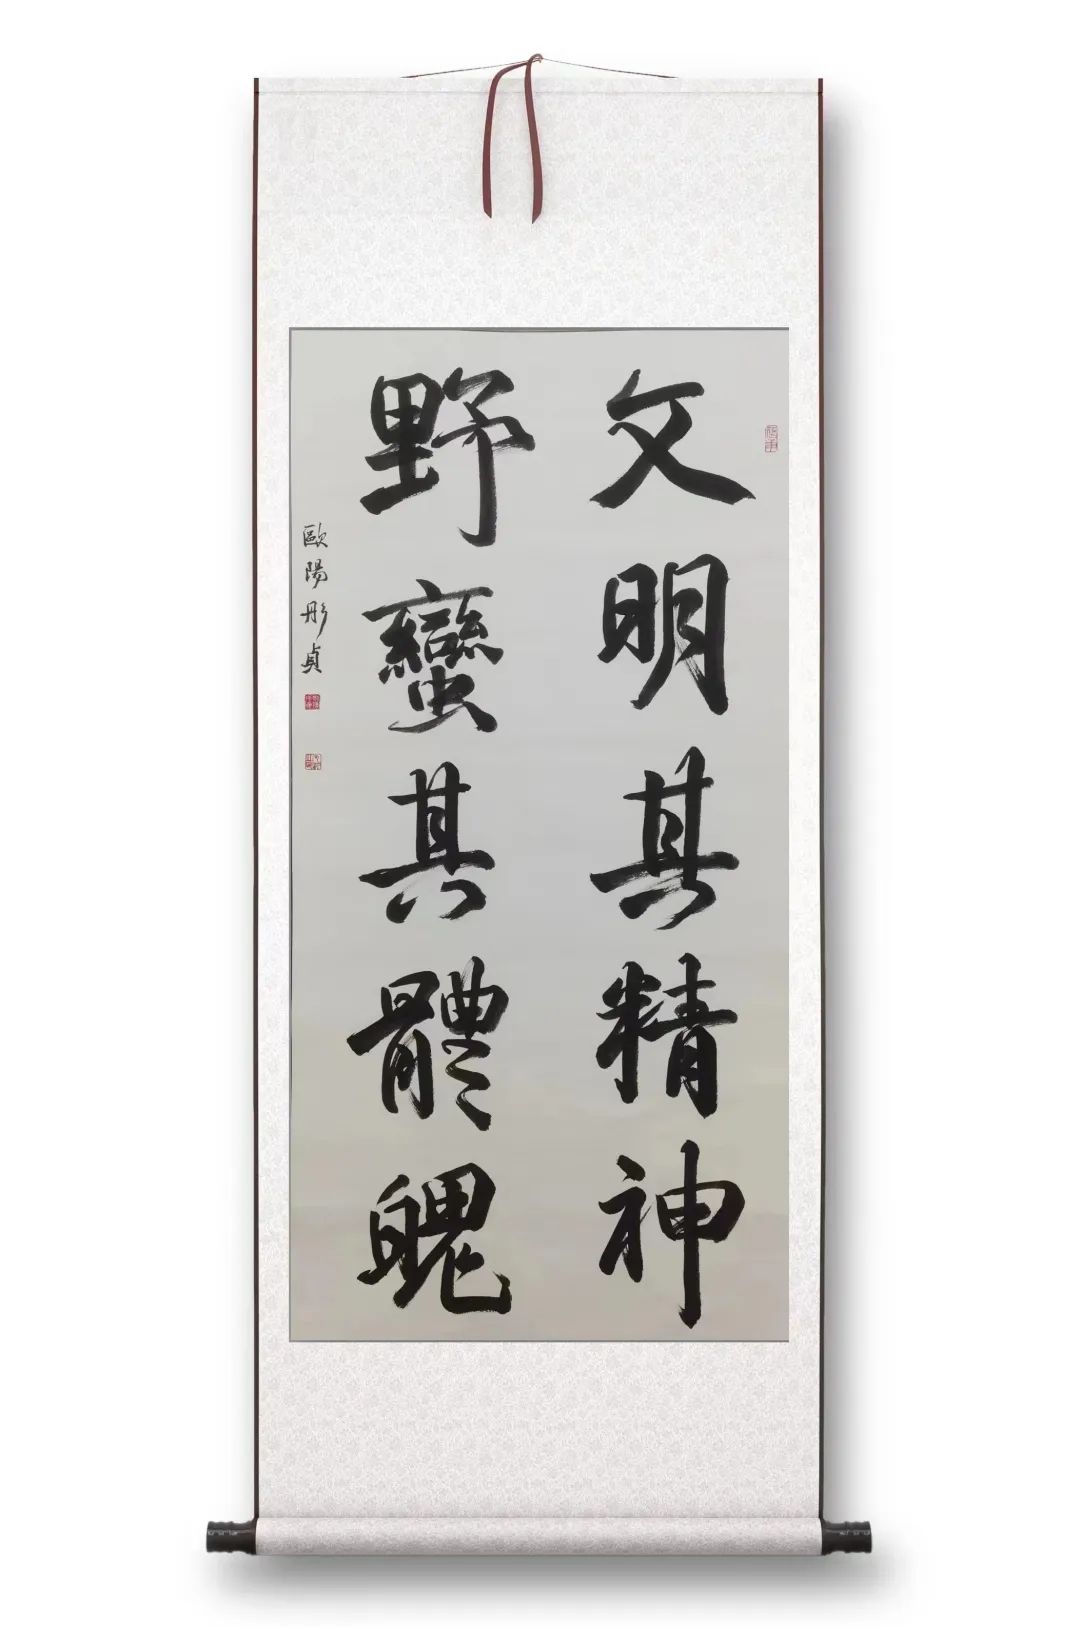 文明其精神
野蠻其體魄
歐陽彤貞